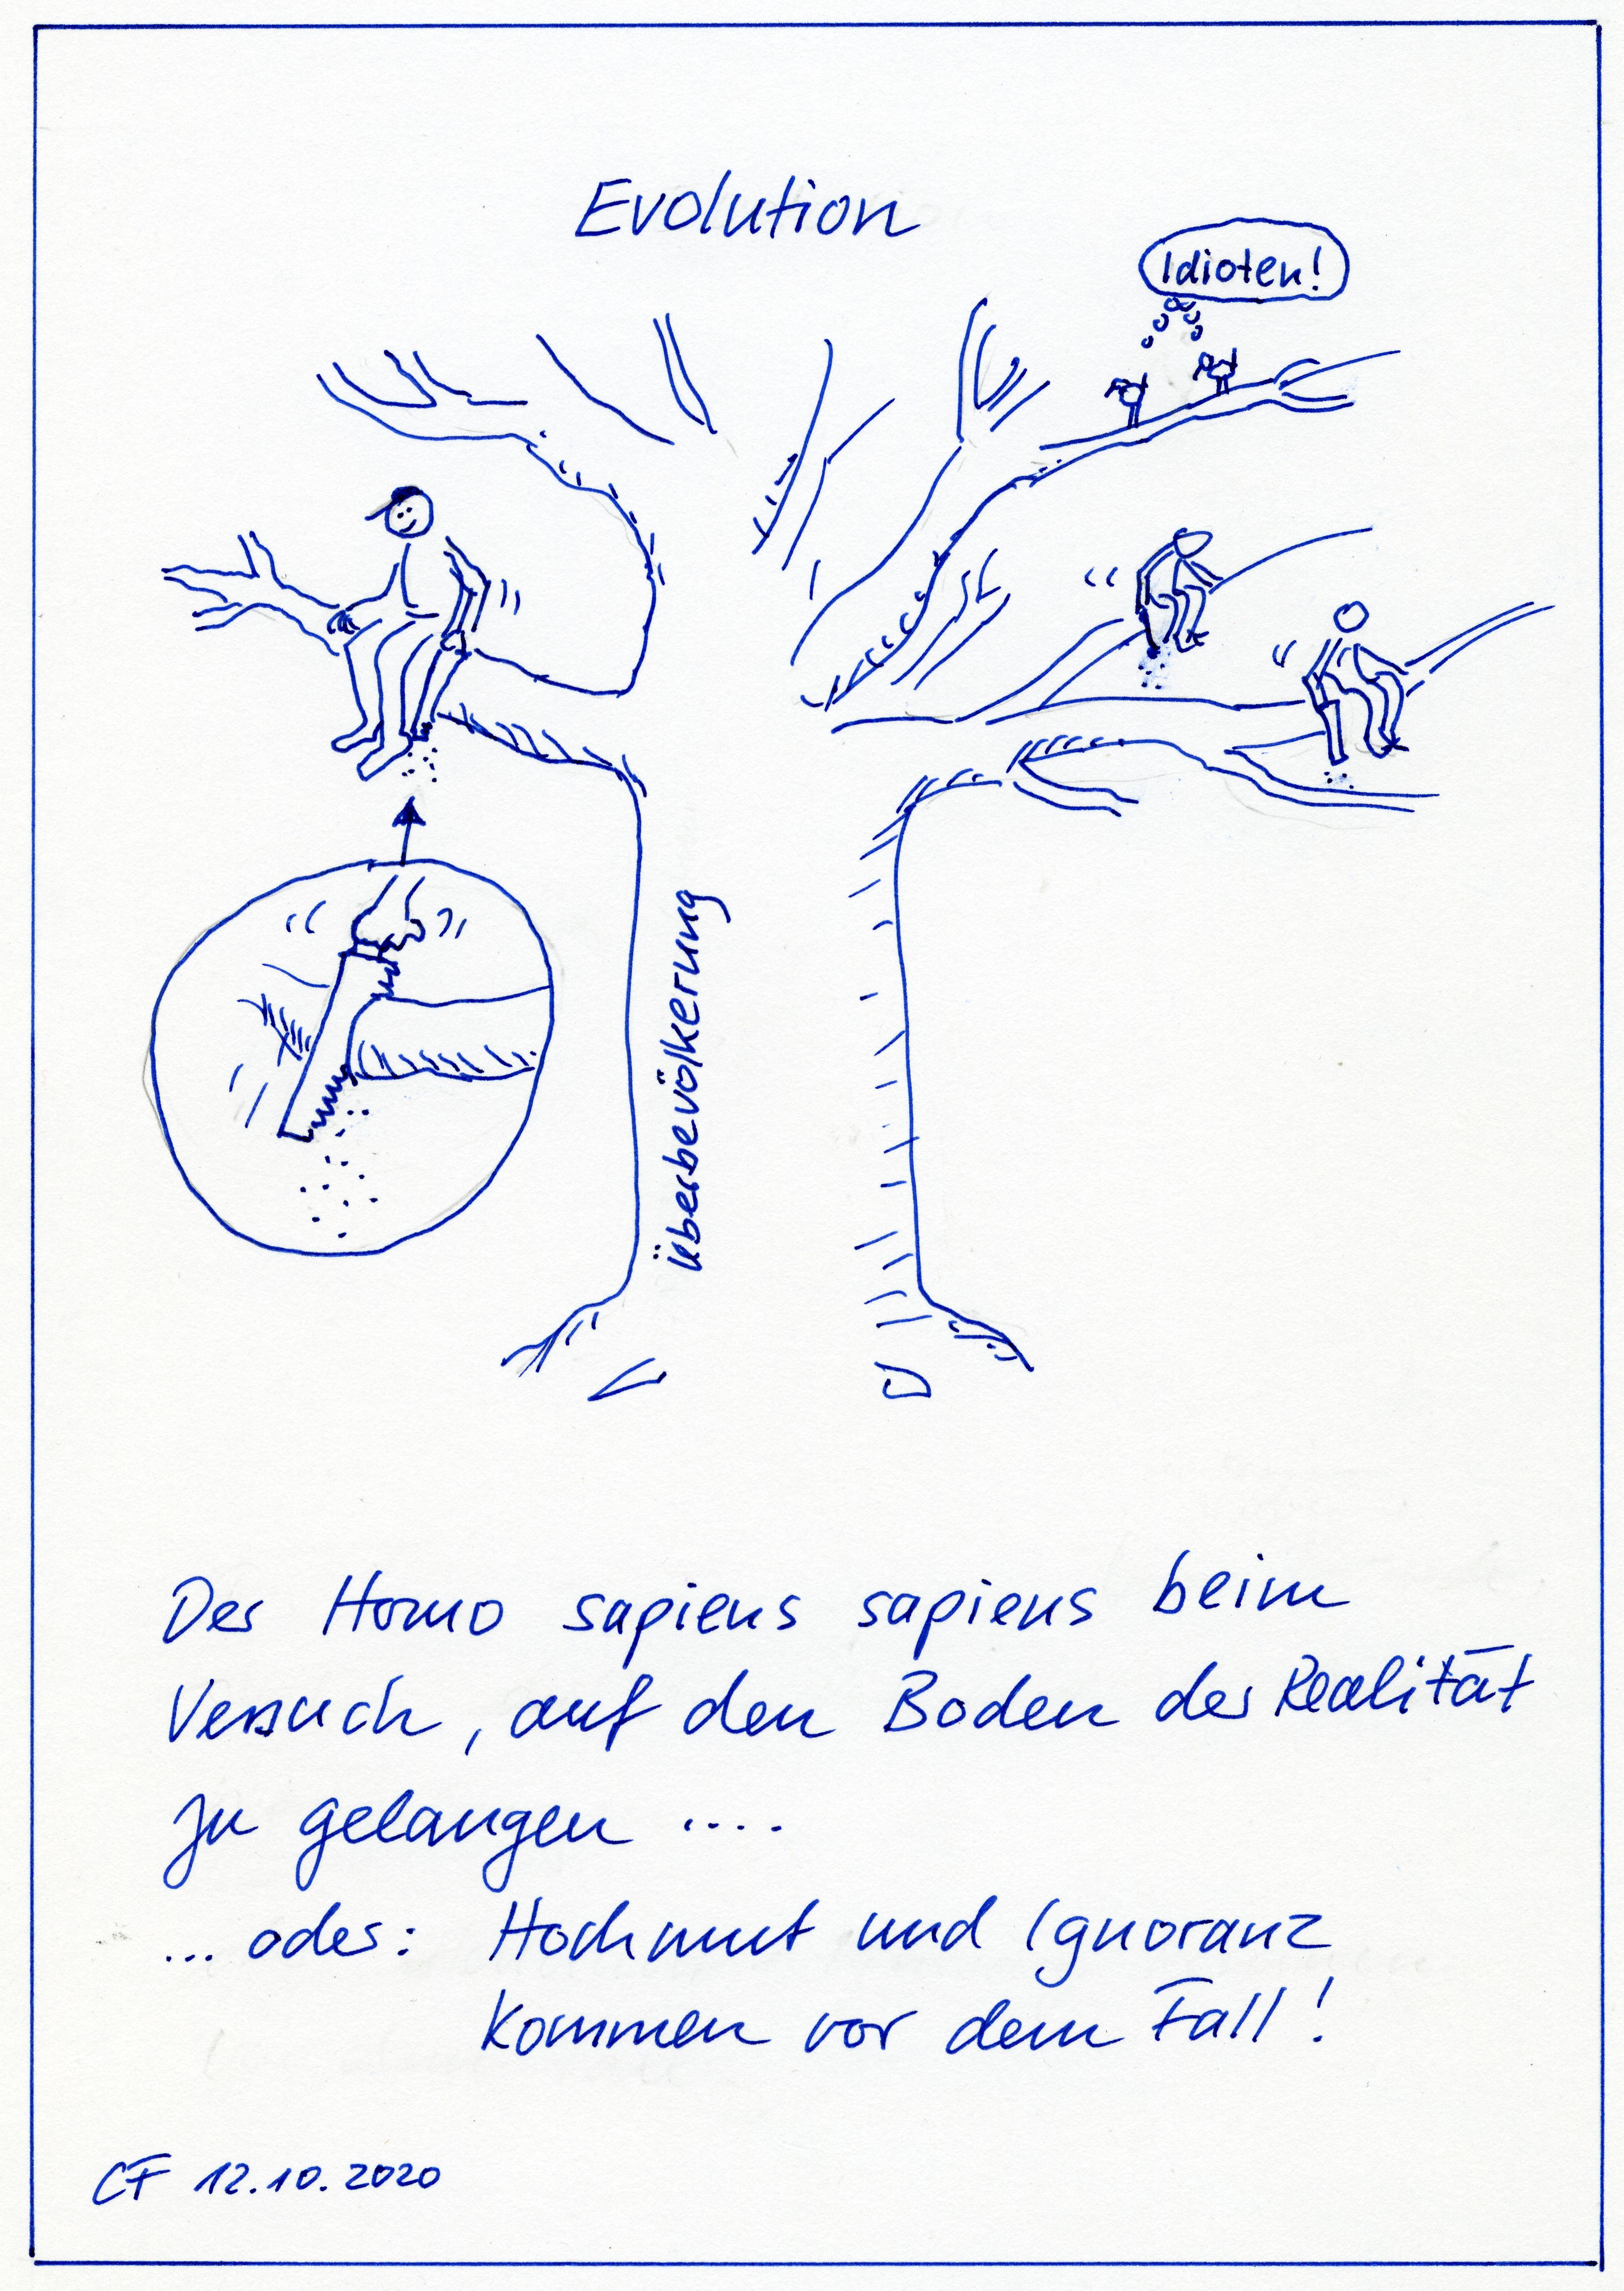 Evolution
Idioten!
Überbevölkerung
Der Homo sapiens sapiens beim
Versuch, auf den Boden der Realität
zu gelangen ....
... oder: Hochmut und Ignoranz
kommen vor dem Fall!
CF 12.10.2020